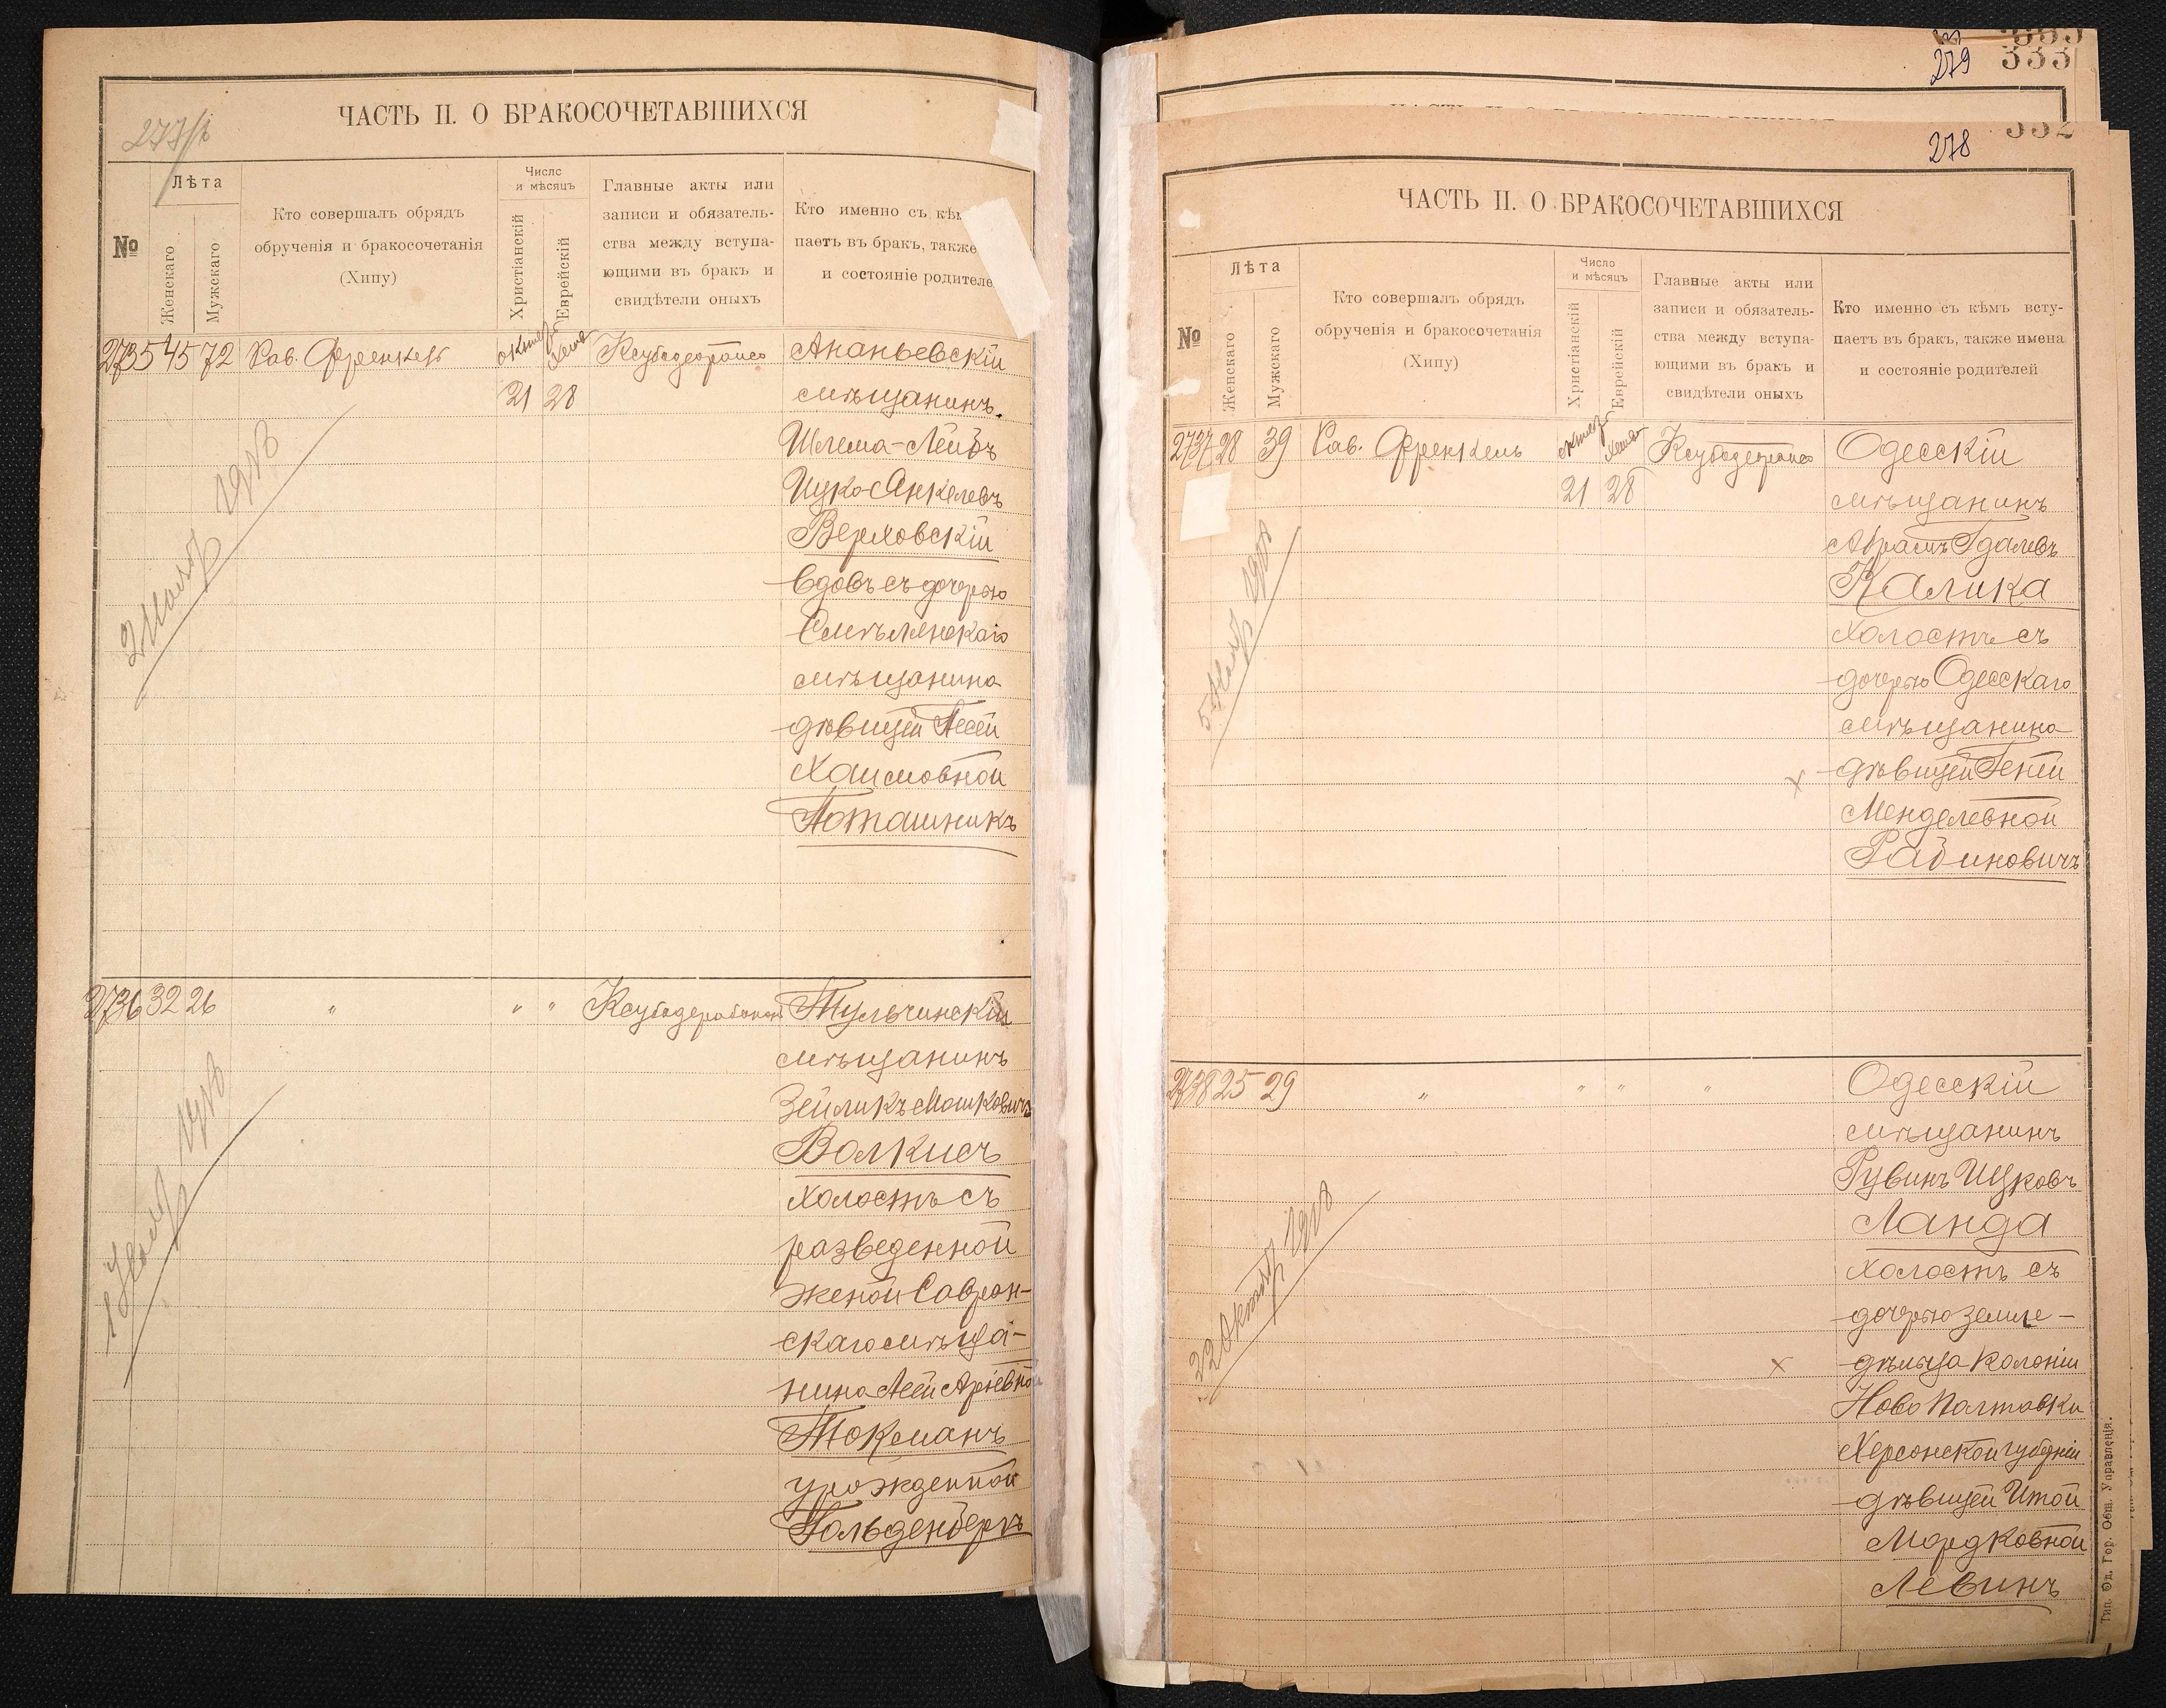 277/б
ЧАСТЬ II. О БРАКОСОЧЕТАВШИХСЯ
№
Лѣта
Женскаго
Мужскаго
Кто совершалъ обрядъ
обрученія и бракосочетанія
(Хипу)
Число
и мѣсяцъ
Христіанскій
Еврейскій
Главные акты или
записи и обязатель-
ства между вступа-
ющими въ бракъ и
свидѣтели оныхъ
Кто именно съ кѣм
паетъ въ бракъ, также
и состояніе родителе
2735 45 72 Рав. Френкель
21 28
Ананьевскій
мѣщанинъ
Шлема-Лейбъ
Ицко-Янкелевъ
Верховскій
вдовъ съ дочерью
Смѣлянскаго
мѣщанина
дѣвицей Песей
Хаимовной
Поташникъ
2736 32 26 " " "
Тульчинскій
мѣщанинъ
Зейликъ Мошковичъ
Волкисъ
холостъ съ
разведенной
женой Савран-
скаго мѣща-
нина Леей Арiевной
Токманъ
урожденной
Гольденберкъ
279 333
332
278
ЧАСТЬ II. О БРАКОСОЧЕТАВШИХСЯ
№
Лѣта
Женскаго
Мужскаго
Кто совершалъ обрядъ
обрученія и бракосочетанія
(Хипу)
Число
и мѣсяцъ
Христіанскій
Еврейскій
Главные акты или
записи и обязатель-
ства между вступа-
ющими въ бракъ и
свидѣтели оныхъ
Кто именно съ кѣмъ всту-
паетъ въ бракъ, также имена
и состояніе родителей
2737 28 39 Рав. Френкель
21 28
Одесскій
мѣщанинъ
Абрамъ Гдалевъ
Калика
холостъ съ
дочерью Одесскаго
мѣщанина
дѣвицей Геней
Менделевной
Рабиновичъ
2738 25 29 " " " "
Одесскій
мѣщанинъ
Рувинъ Ицковъ
Ланда
холостъ съ
дочерью земле-
дѣльца колоніи
Ново Полтавки
Херсонской губерніи
дѣвицей Итой
Мордковной
Левинъ
22 Октяб
Тип. Од. Гор. Общ. Управленія.